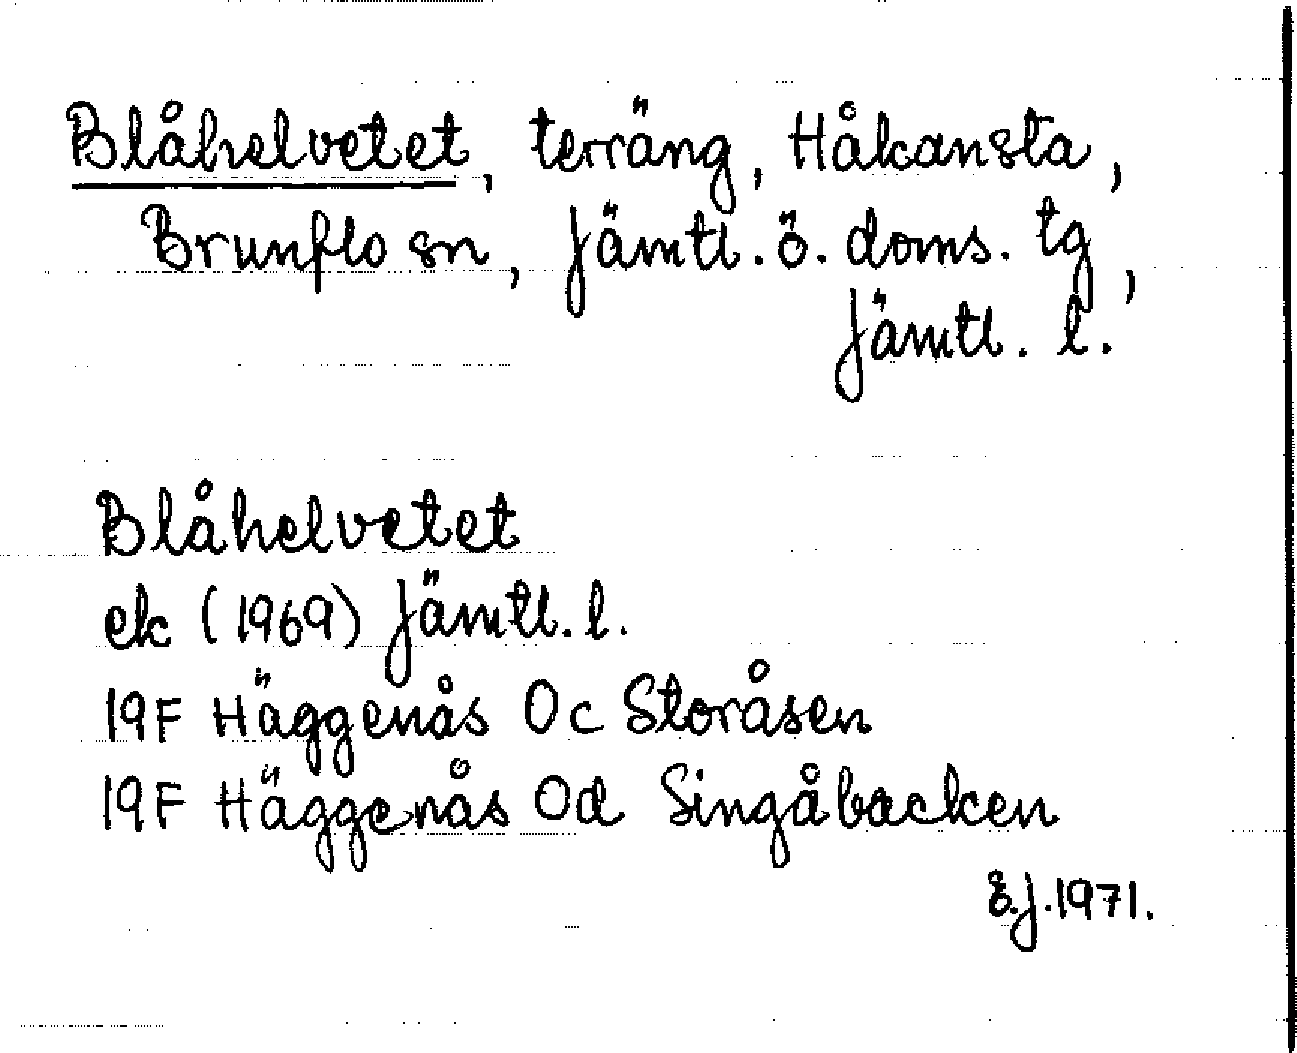 Blåhelvetet, terräng, Håkansta,
Brunflo sn, Jämtl. ö. doms. tg,
Jämtl. l.
Blåhelvetet
ek (1969) Jämtl. l.
19F Häggenås 0c Storåsen
19F Häggenås 0d Singåbacken
E.J. 1971.